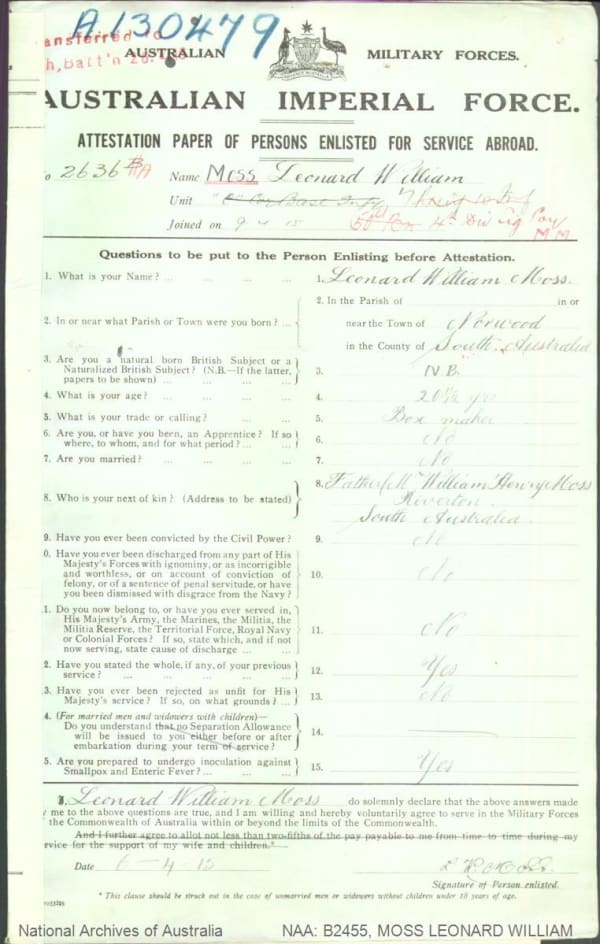 A.130479
ansferred to
h, Batt'n 26.
AUSTRALIAN MILITARY FORCES.
AUSTRALIAN IMPERIAL FORCE.
ATTESTATION PAPER OF PERSONS ENLISTED FOR SERVICE ABROAD.
o 2636 A Name Moss Leonard William
Unit "C" Coy Base Infy
Joined on 9 4 15 50th Bn 4th Div Cyc Coy
M M
Questions to be put to the Person Enlisting before Attestation.
1. What is your Name? ... 1. Leonard William Moss.
2. In or near what Parish or Town were you born? ... 2. In the Parish of in or
near the Town of Norwood
in the County of South Australia
3. Are you a natural born British Subject or a
Naturalized British Subject? (N.B.—If the latter,
papers to be shown) ... 3. N.B.
4. What is your age? ... 4. yrs
5. What is your trade or calling? ... 5. Box maker
6. Are you, or have you been, an Apprentice? If so
where, to whom, and for what period? ... 6. No
7. Are you married? ... 7. No
8. Who is your next of kin? (Address to be stated) 8. Father Mr William Henry Moss
Riverton.
South Australia.
9. Have you ever been convicted by the Civil Power? 9. No
0. Have you ever been discharged from any part of His
Majesty's Forces with ignominy, or as incorrigible
and worthless, or on account of conviction of
felony, or of a sentence of penal servitude, or have
you been dismissed with disgrace from the Navy? 10. No
1. Do you now belong to, or have you ever served in,
His Majesty's Army, the Marines, the Militia, the
Militia Reserve, the Territorial Force, Royal Navy
or Colonial Forces? If so, state which, and if not
now serving, state cause of discharge ... 11. No
2. Have you stated the whole, if any, of your previous
service? ... 12. Yes
3. Have you ever been rejected as unfit for His
Majesty's service? If so, on what grounds? ... 13. No
4. (For married men and widowers with children)—
Do you understand that no Separation Allowance
will be issued to you either before or after
embarkation during your term of service? 14.
5. Are you prepared to undergo inoculation against
Smallpox and Enteric Fever? ... 15. Yes
I, Leonard William Moss do solemnly declare that the above answers made
y me to the above questions are true, and I am willing and hereby voluntarily agree to serve in the Military Forces
the Commonwealth of Australia within or beyond the limits of the Commonwealth.
And I further agree to allot not less than two-fifths of the pay payable to me from time to time during my
rvice for the support of my wife and children.*
Date 6-4-15 L W Moss
Signature of Person enlisted.
* This clause should be struck out in the case of unmarried men or widowers without children under 18 years of age.
National Archives of Australia NAA: B2455, MOSS LEONARD WILLIAM